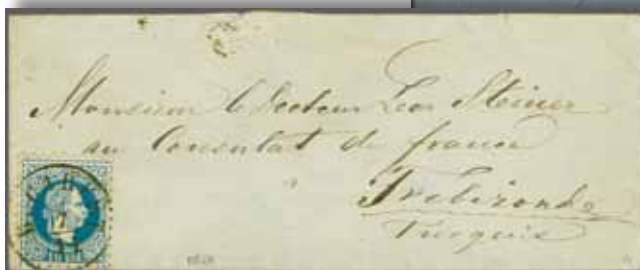 Monsieur le Docteur Leon Steiner
au Consulat de france
Trebizonde
Turquie